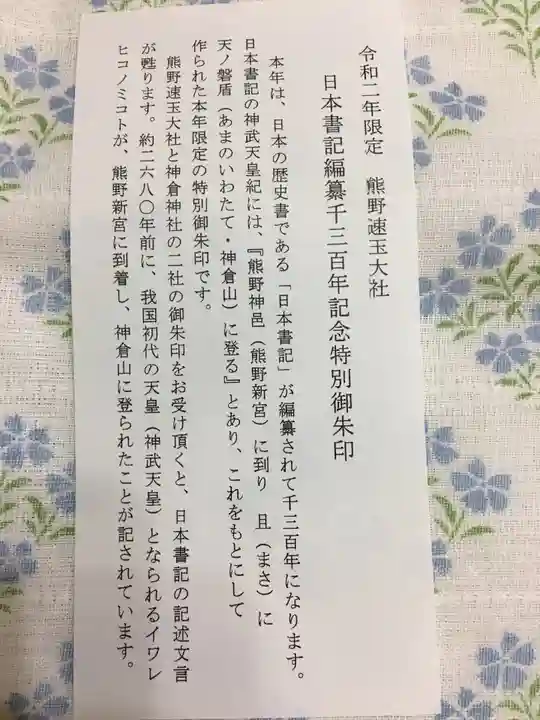 令和二年限定　熊野速玉大社
日本書記編纂千三百年記念特別御朱印
本年は、日本の歴史書である「日本書記」が編纂されて千三百年になります。
日本書記の神武天皇紀には、『熊野神邑（熊野新宮）に到り　且（まさ）に
天ノ磐盾（あまのいわたて・神倉山）に登る』とあり、これをもとにして
作られた本年限定の特別御朱印です。
熊野速玉大社と神倉神社の二社の御朱印をお受け頂くと、日本書記の記述文言
が甦ります。約二六八〇年前に、我国初代の天皇（神武天皇）となられるイワレ
ヒコノミコトが、熊野新宮に到着し、神倉山に登られたことが記されています。